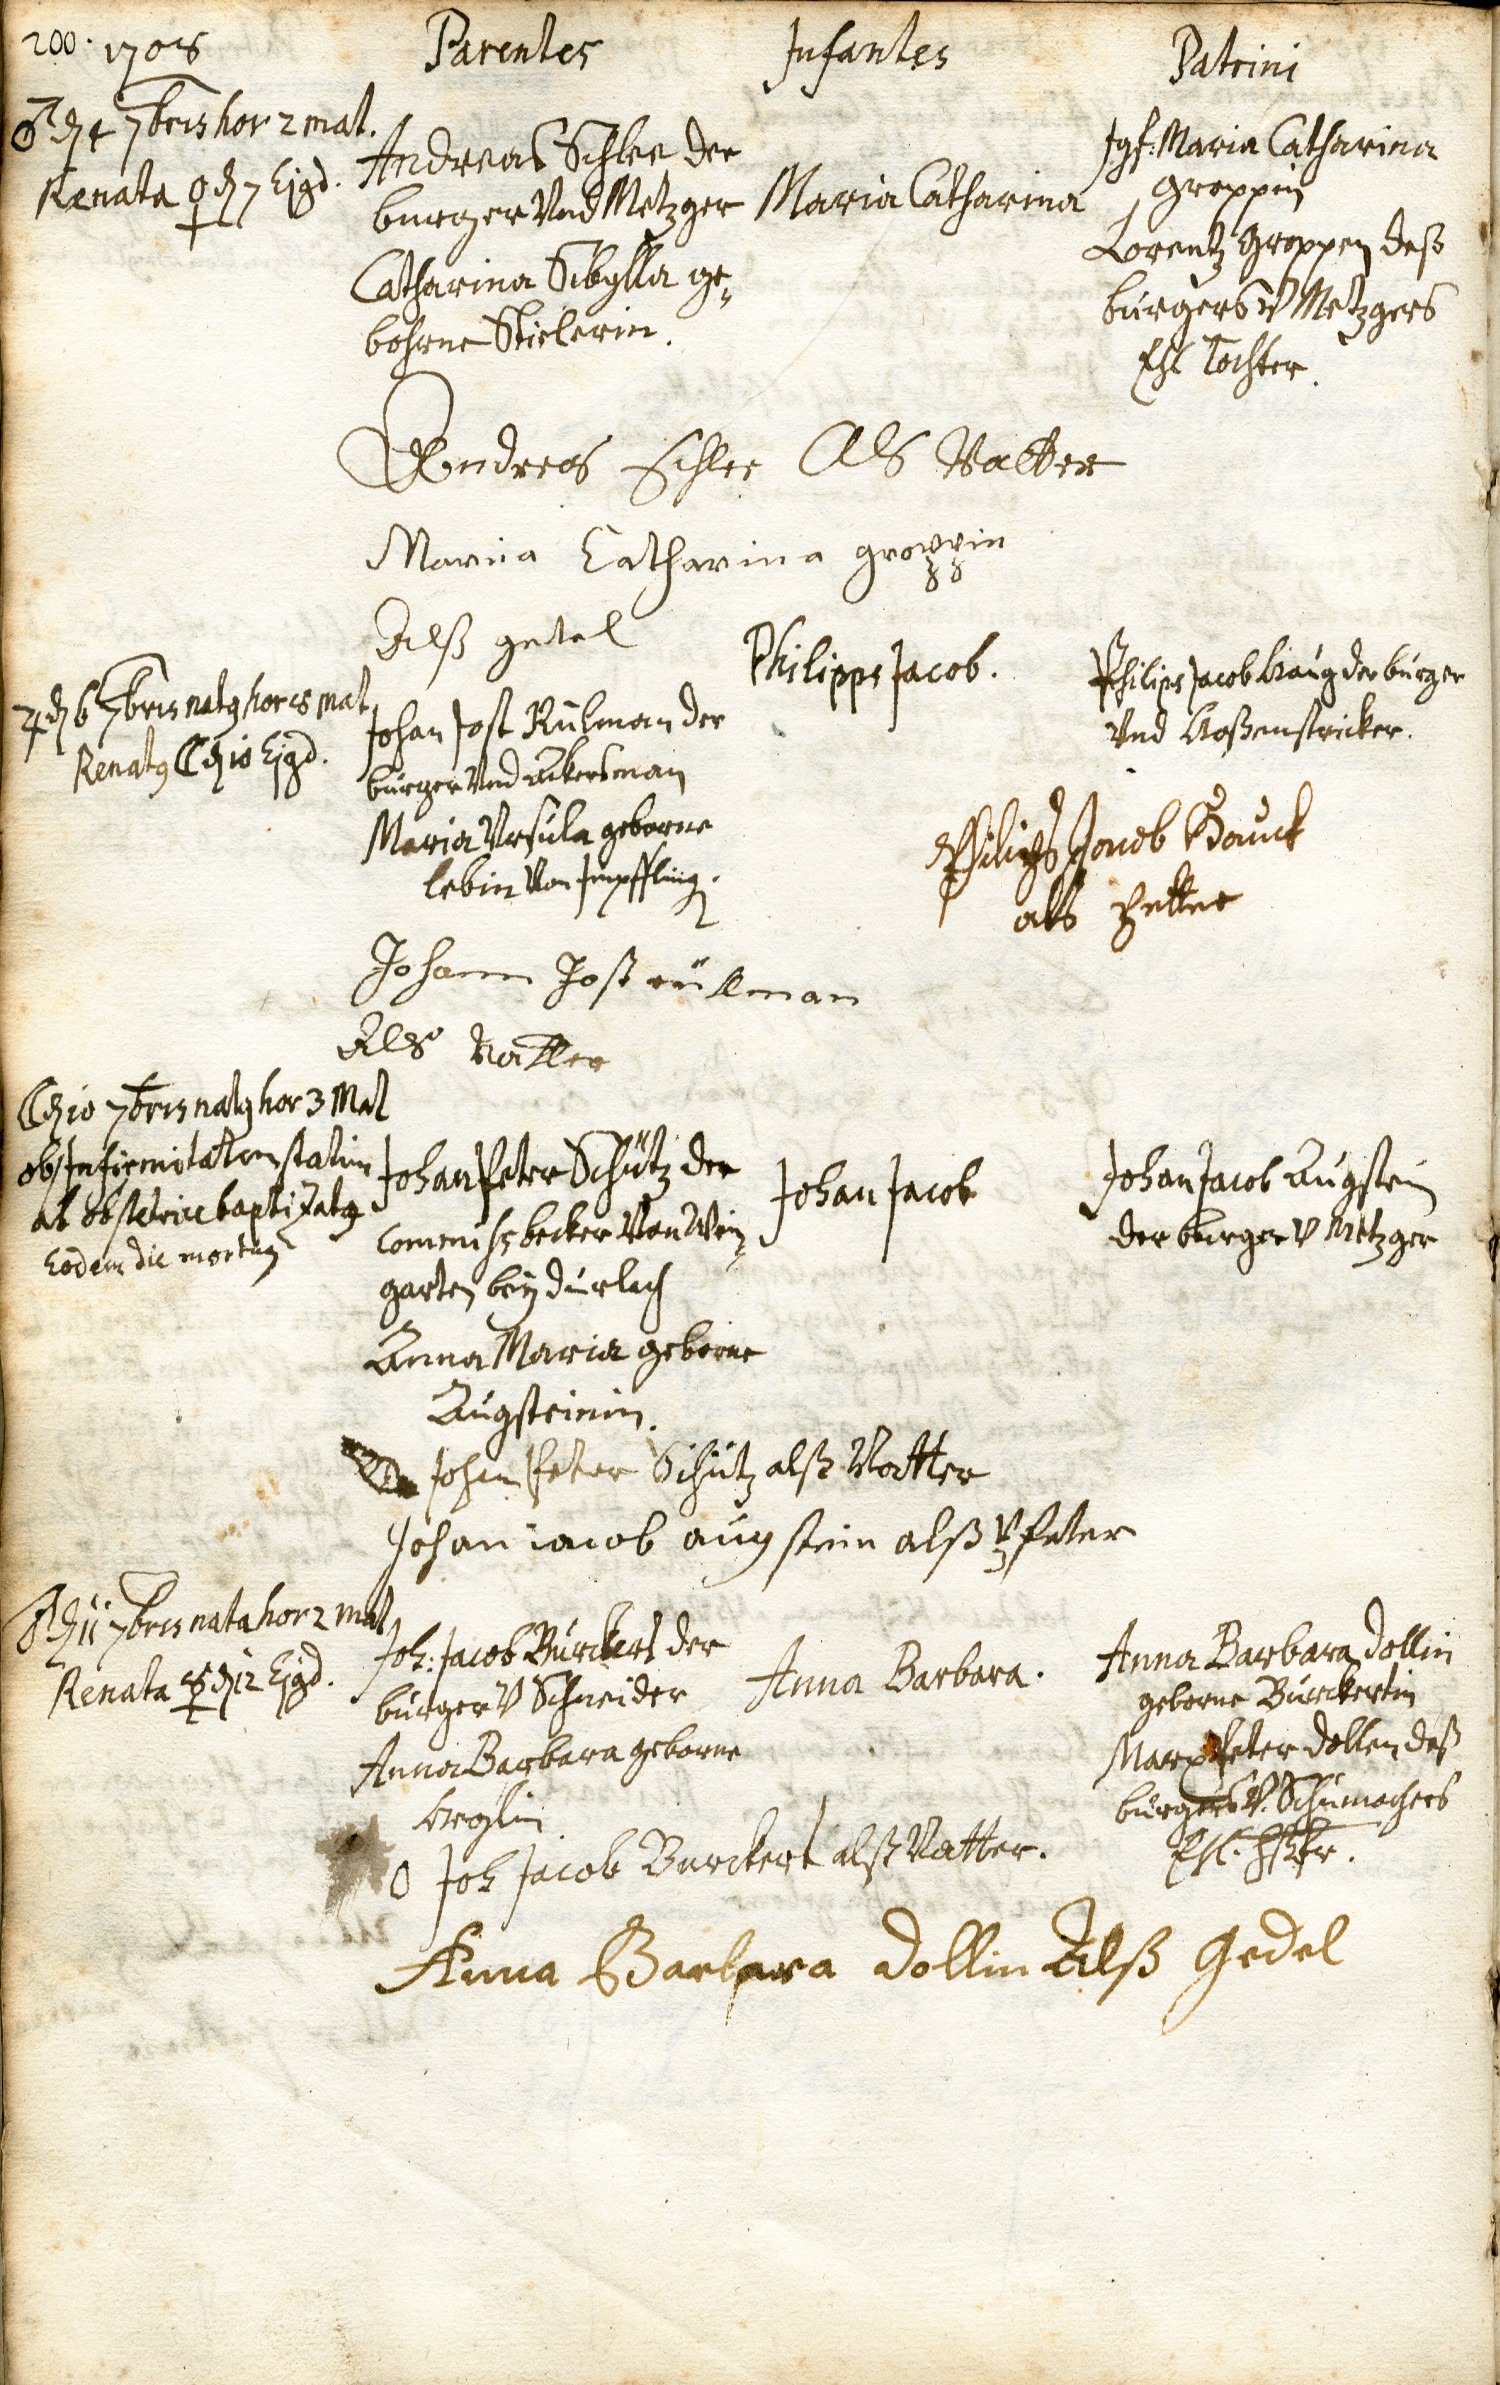 200. 1708 Parentes Infantes Patrini
♂ d 4 7bris hor 2 mat.
Renata ♀ d 7 Ejgd.
Andreas Schlee der
burger Vnd Metzger
Catharina Sibylla ge„
bohrne Stielerin.
Maria Catharina
Jgf: Maria Catharina
Groppin
Lorentz Groppen deß
burgers V Metzgers
Ehl Tochter.
Andreas Schlee Als Vatter
Maria Catharina groppin
Alß getel
♃ d 6 7bris natg hor mat
Renatg ☾ d 10 Ejgd.
Johan Jost Rulman der
burger Vnd Ackersman
Maria Vrsula geborne
lebin Von Impffling.
Philipps Jacob.
Philips Jacob der burger
Vnd Hoßenstricker.
Philips Jacob Hauck
als Petter
Johann Jost rüllman
Als Vatter
☾ d 10 7bris natg hor 3 Mat
ob Infirmitatem statim
ab obstetrice baptizatg
Eodem die mortug
Johan Peter Schütz der
Commiss becker Von Wein„
garten bey durlach
Anna Maria geborne
Augsteinin.
Johan Jacob
Johan Jacob Augstein
der burger V Metzger
Johan Peter Schütz alß Vatter
Johan iacob augstein alß Pfeter
♂ d 11 7bris nata hor 2 mat
Renata ☿ d 12 Ejgd.
Joh: Jacob Burckert der
burger V Schneider
Anna Barbara geborne
Anna Barbara.
Anna Barbara Dollin
geborne Burckertin
Marx Peter Dollen deß
burgers V. Schumachers
Ehl.
Joh Jacob Burckert alß Vatter.
Anna Barbara Dollin Alß Gedel